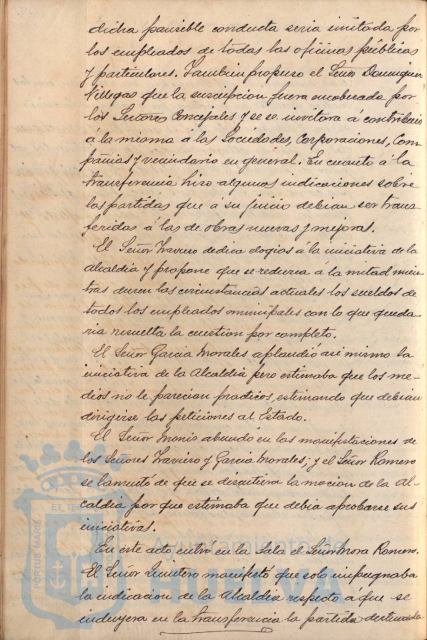 dicha plausible conducta seria imitada por
los empleados de todas las oficinas públicas
y particulares. Tambien propuso el Señor Dominguez
Villegas que la suscripcion fuera encabezada por
los Señores Concejales y se se invitara á contribuir
á la misma á las Sociedades, Corporaciones, Com
pañias y vecindario en general. En cuanto á la
transferencia hizo algunas indicaciones sobre
las partidas que á su juicio debian ser trans
feridas á las de obras nuevas y mejoras.
El Señor Traviero dedica elogios á la iniciativa de la
Alcaldia y propone que se reduzca á la mitad mien
tras duren las circunstancias actuales los sueldos de
todos los empleados municipales con lo que queda
ria resuelta la cuestion por completo.
El Señor Garcia Morales aplaudió asi mismo la
iniciativa de la Alcaldia pero estimaba que los me
dios no le parecian practicos, estimando que debian
dirigirse las peticiones al Estado.
El Señor abundó en las manifestaciones de
los Señores Traviero y Garcia Morales; y el Señor Romero
se lamentó de que se discutiera la mocion de la Al
caldia por que estimaba que debia aprobarse sus
iniciativas.
En este acto entró en la Sala el Señor Mora Romero.
El Señor Quintero manifestó que solo impugnaba
la indicacion de la Alcaldia respecto á que se
incluyera en la transferencia la partida destinada
Ayuntamiento de
PORTUS MARIS